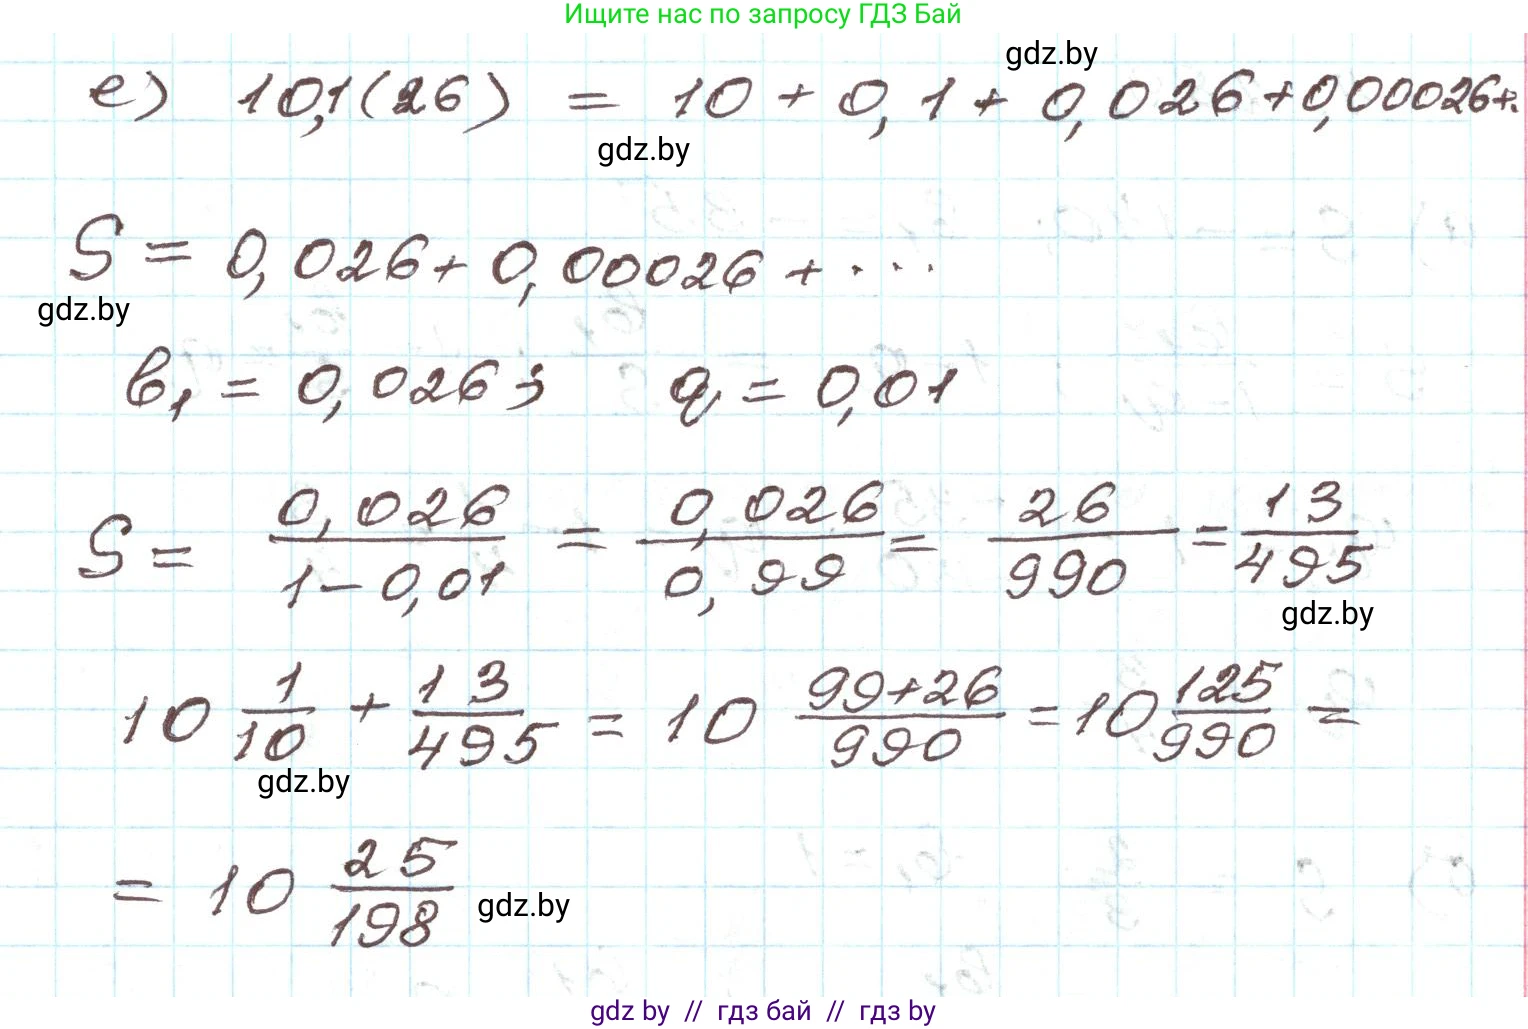 Ищите нас по запросу ГДЗ Бай
gdz.by
е) 10,1(26) = 10 + 0,1 + 0,026 + 0,00026 + ..
gdz.by
S = 0,026 + 0,00026 + ...
gdz.by
b₁ = 0,026; q = 0,01
S = 0,026/(1 - 0,01) = 0,026/0,99 = 26/990 = 13/495
gdz.by
10 1/10 + 13/495 = 10 (99+26)/990 = 10 125/990 =
gdz.by
= 10 25/198
gdz.by
gdz by // гдз бай // гдз by